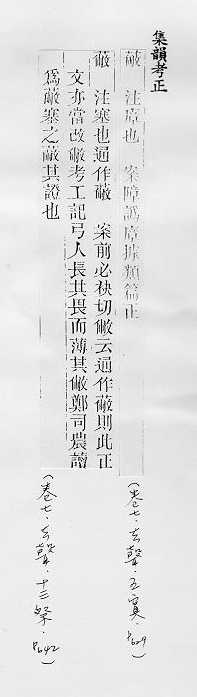 集韻考正
蔽 注㡿也 案障譌㡿據類篇正
(卷七·去聲·五寘·P629)
蔽 注塞也通作蔽 案前必袂切㡀云通作蔽則此正
文亦當改㡀考工記弓人長其畏而薄其㡀鄭司農讀
爲蔽塞之蔽其證也
(卷七·去聲·十三祭·P642)